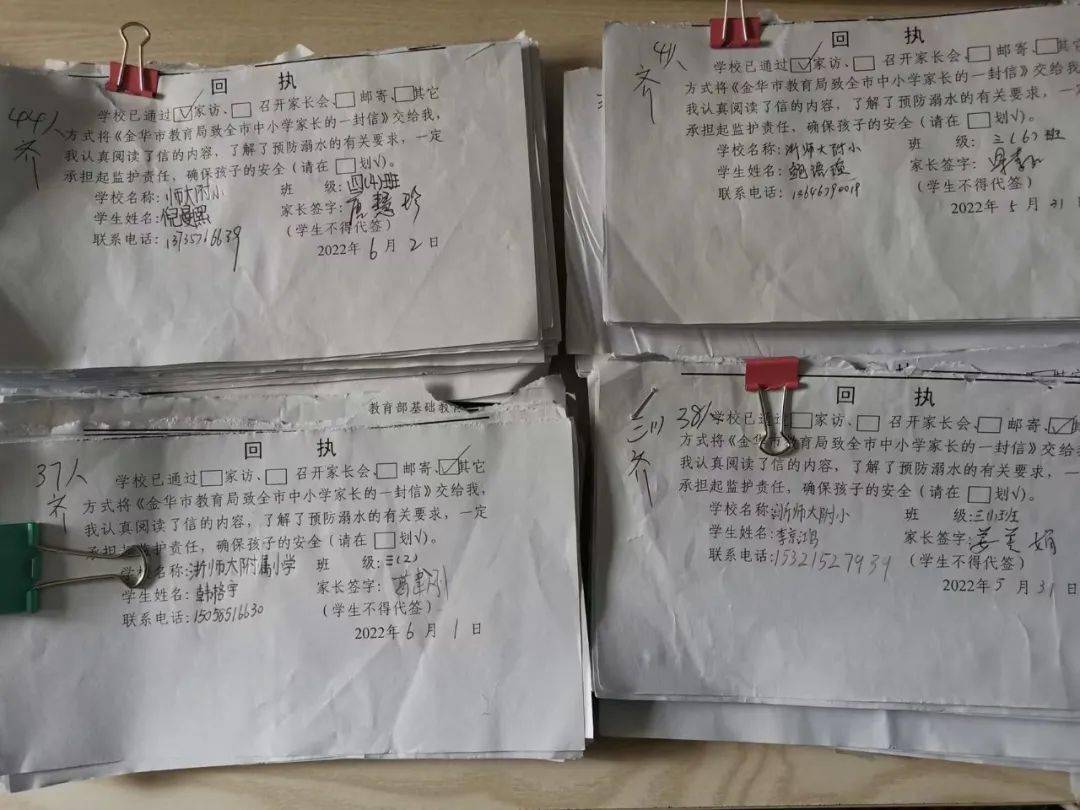 44人
齐
回 执
学校已通过☑家访、□召开家长会、□邮寄、□其它
方式将《金华市教育局致全市中小学家长的一封信》交给我,
我认真阅读了信的内容,了解了预防溺水的有关要求,一定
承担起监护责任,确保孩子的安全(请在□划√)。
学校名称:师大附小 班 级:四(4)班
学生姓名: 家长签字:
联系电话: (学生不得代签)
2022年6月2日
41人
齐
回 执
学校已通过☑家访、□召开家长会、□邮寄、□其它
方式将《金华市教育局致全市中小学家长的一封信》交给
我认真阅读了信的内容,了解了预防溺水的有关要求,一
承担起监护责任,确保孩子的安全(请在□划√)。
学校名称:浙师大附小 班 级:三(6)班
学生姓名: 家长签字:
联系电话:13646790019 (学生不得代签)
2022年5月31日
教育部基础教育
37人
齐
回 执
学校已通过□家访、□召开家长会、□邮寄、☑其它
方式将《金华市教育局致全市中小学家长的一封信》交给我,
我认真阅读了信的内容,了解了预防溺水的有关要求,一定
承担起监护责任,确保孩子的安全(请在□划√)。
学校名称:浙师大附属小学 班 级:三(2)
学生姓名:韩格宇 家长签字:
联系电话:15058516630 (学生不得代签)
2022年6月1日
三(1)
38人
齐
回 执
学校已通过□家访、□召开家长会、□邮寄、☑
方式将《金华市教育局致全市中小学家长的一封信》交给
我认真阅读了信的内容,了解了预防溺水的有关要求,
承担起监护责任,确保孩子的安全(请在□划√)。
学校名称:浙师大附小 班 级:三(1)班
学生姓名: 家长签字:姜美娟
联系电话:15321527934 (学生不得代签)
2022年5月31日